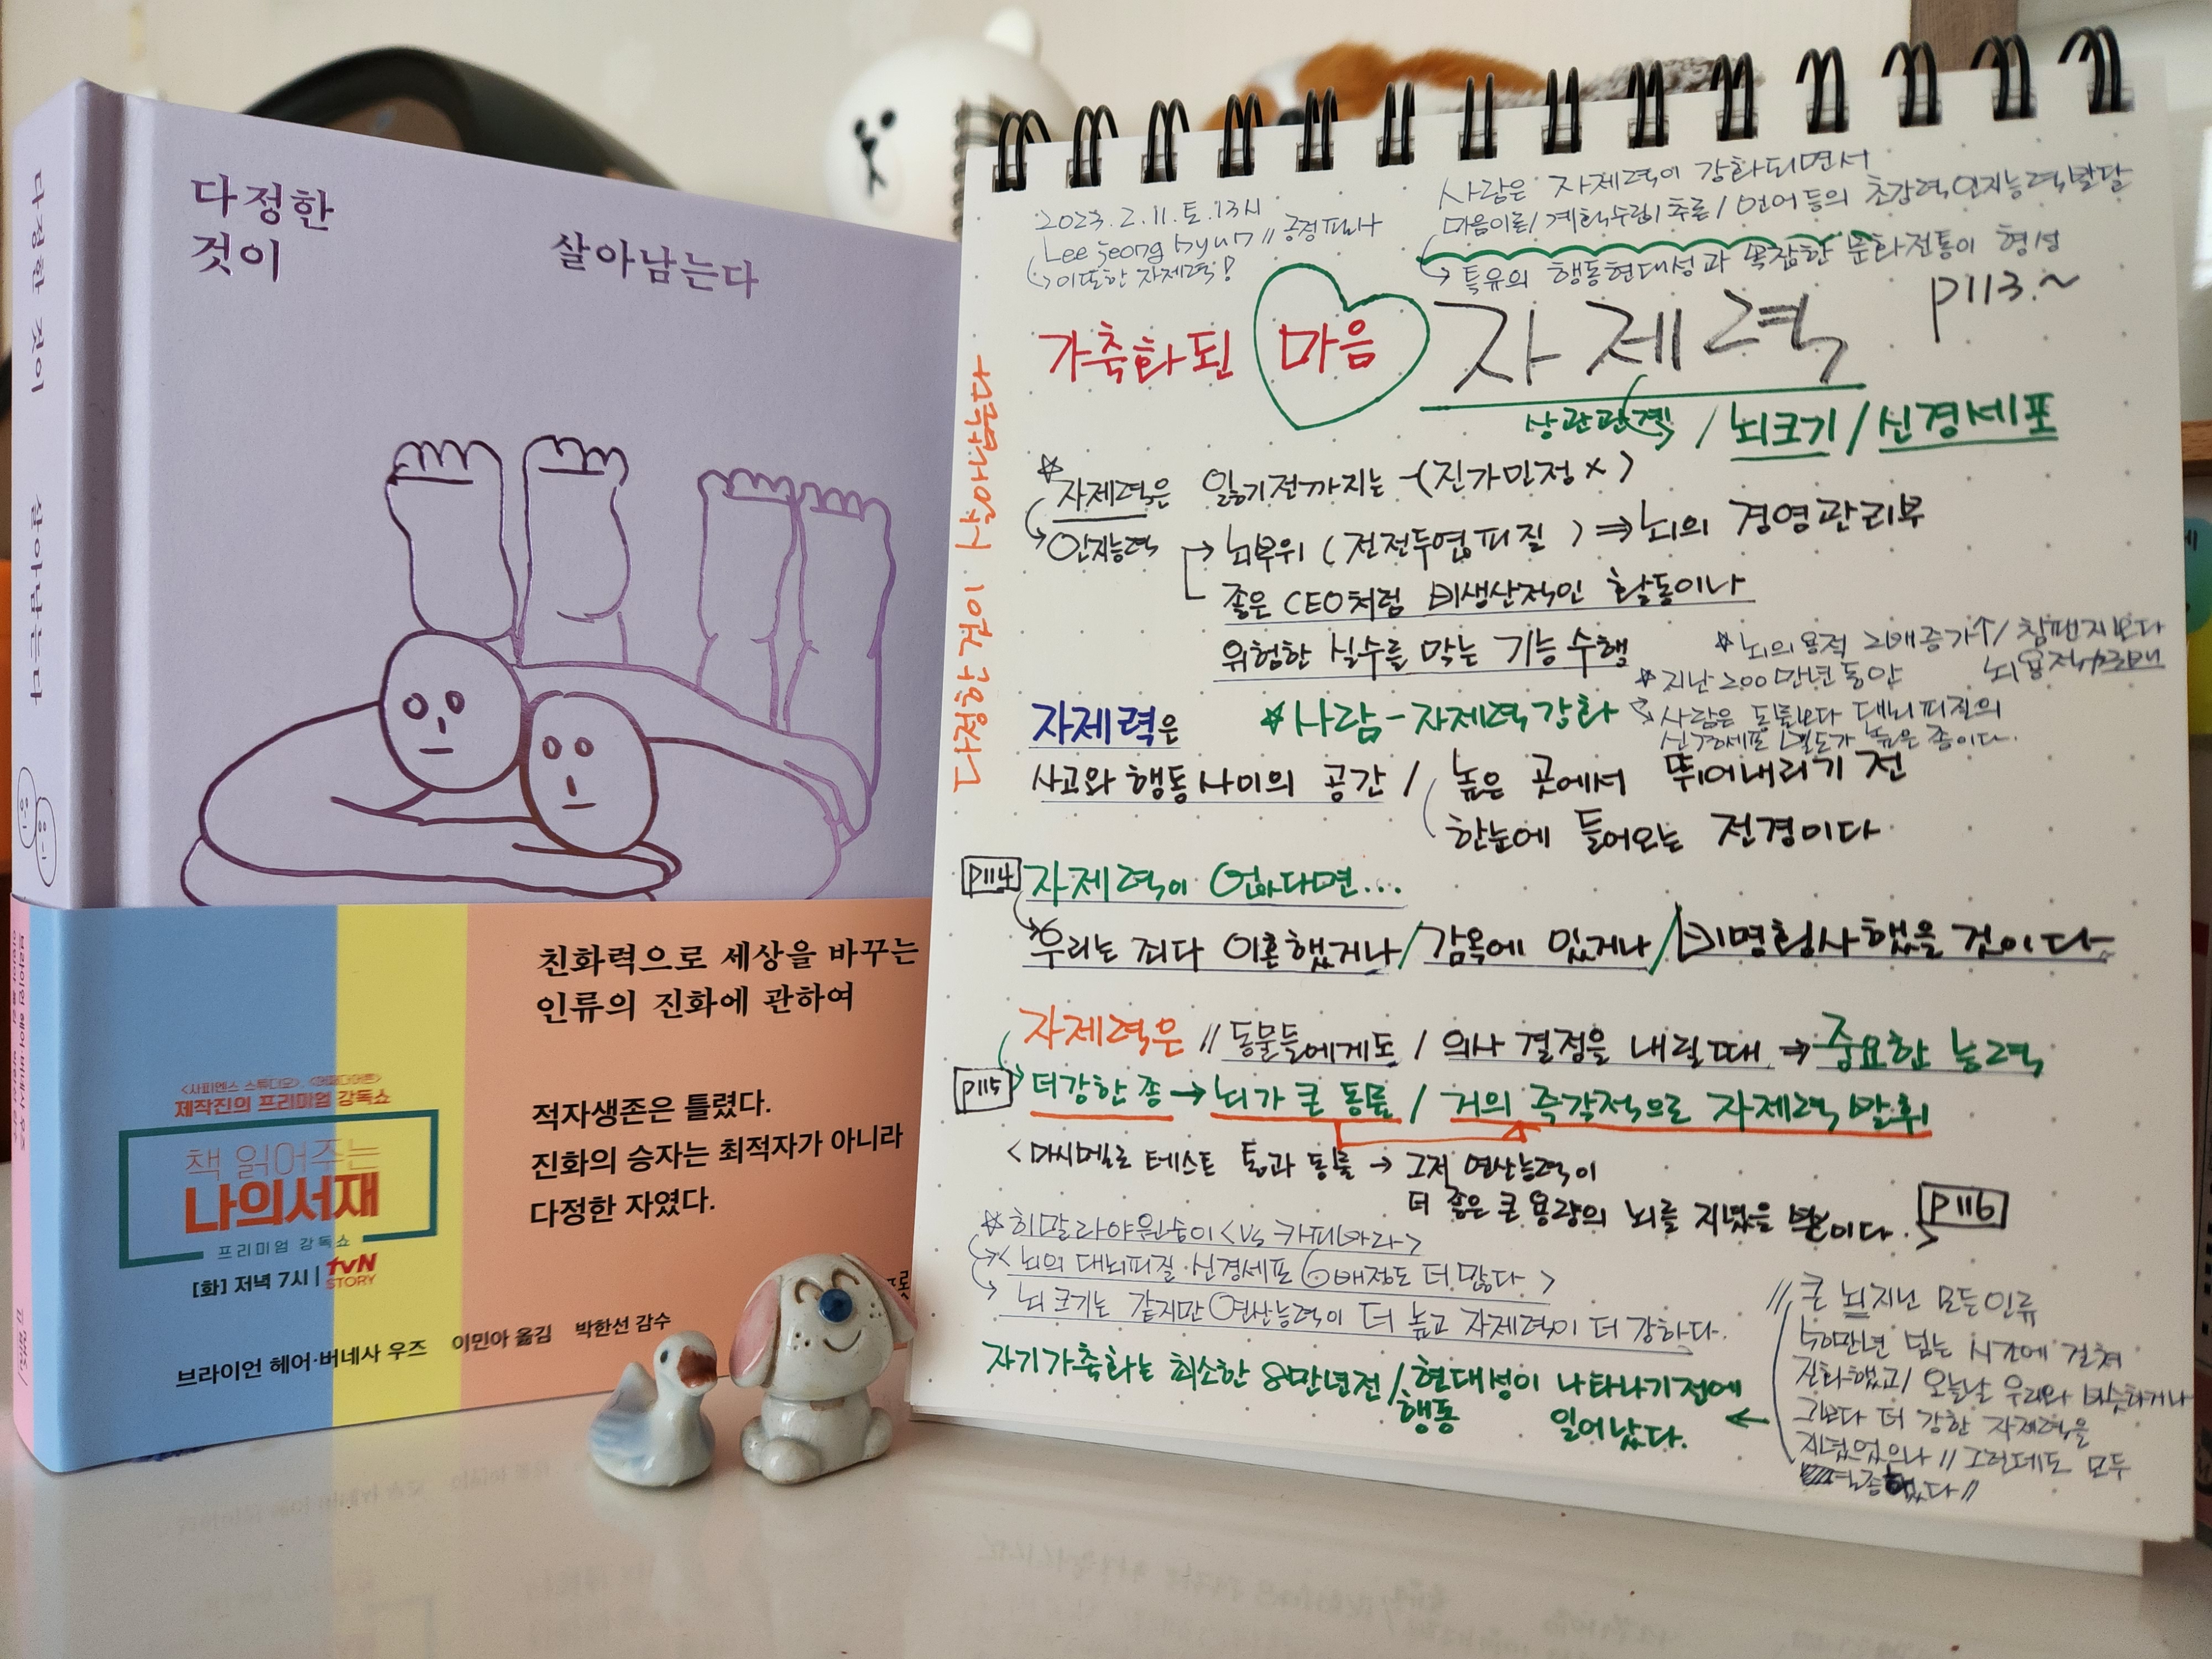 다정한
것이
살아남는다
다정한 것이 살아남는다
친화력으로 세상을 바꾸는
인류의 진화에 관하여
적자생존은 틀렸다.
진화의 승자는 최적자가 아니라
다정한 자였다.
제작진의 프리미엄 강독쇼
책 읽어주는
나의서재
프리미엄 강독쇼
[화] 저녁 7시 | tvN
STORY
브라이언 헤어·버네사 우즈 이민아 옮김 박한선 감수
2023.2.11.토.13시
Lee jeong hyun // 긍정
자제력!
사람은 자제력이 강화되면서
마음이론/계획수립/추론/언어 등의 초강력인지능력발달
특유의 행동현대성과 복잡한 문화전통이 형성
가축화된 마음 자제력 p113.~
상관관계 / 뇌크기 / 신경세포
자제력은 잃기전까지는 (진가인정×)
인지능력 → 뇌부위 (전전두엽피질) ⇒ 뇌의 경영관리부
좋은 CEO처럼 비생산적인 활동이나
위험한 실수를 막는 기능 수행
뇌의 용적 2배증가↑/ 침팬지보다
지난 200만년동안
뇌용적
자제력은 사람-자제력강화
사람은 동물보다 대뇌피질의
신경세포 밀도가 높은 종이다.
사고와 행동사이의 공간 / 높은 곳에서 뛰어내리기 전
한눈에 들어오는 전경이다
p114 자제력이 없다면...
우리는 죄다 이혼했거나/감옥에 있거나/비명횡사했을 것이다
자제력은 // 동물들에게도 / 의사 결정을 내릴때 → 중요한 능력
p115 더강한 종 → 뇌가 큰 동물 / 거의 즉각적으로 자제력 발휘
<마시멜로 테스트 통과 동물 → 그저 연산능력이
더 좋은 큰 용량의 뇌를 지녔을 뿐이다.> p116
히말라야원숭이 <Vs 카피바라>
<뇌의 대뇌피질·신경세포 6배정도 더 많다>
뇌 크기는 같지만 연산능력이 더 높고 자제력이 더 강하다.
자기가축화는 최소한 8만년전/행동 현대성이 나타나기 전에
일어났다.
// 큰 뇌 지닌 모든인류
50만년 넘는 시간에 걸쳐
진화했고/ 오늘날 우리와 비슷하거나
그보다 더 강한 자제력을
지녔었으나 // 그런데도 모두